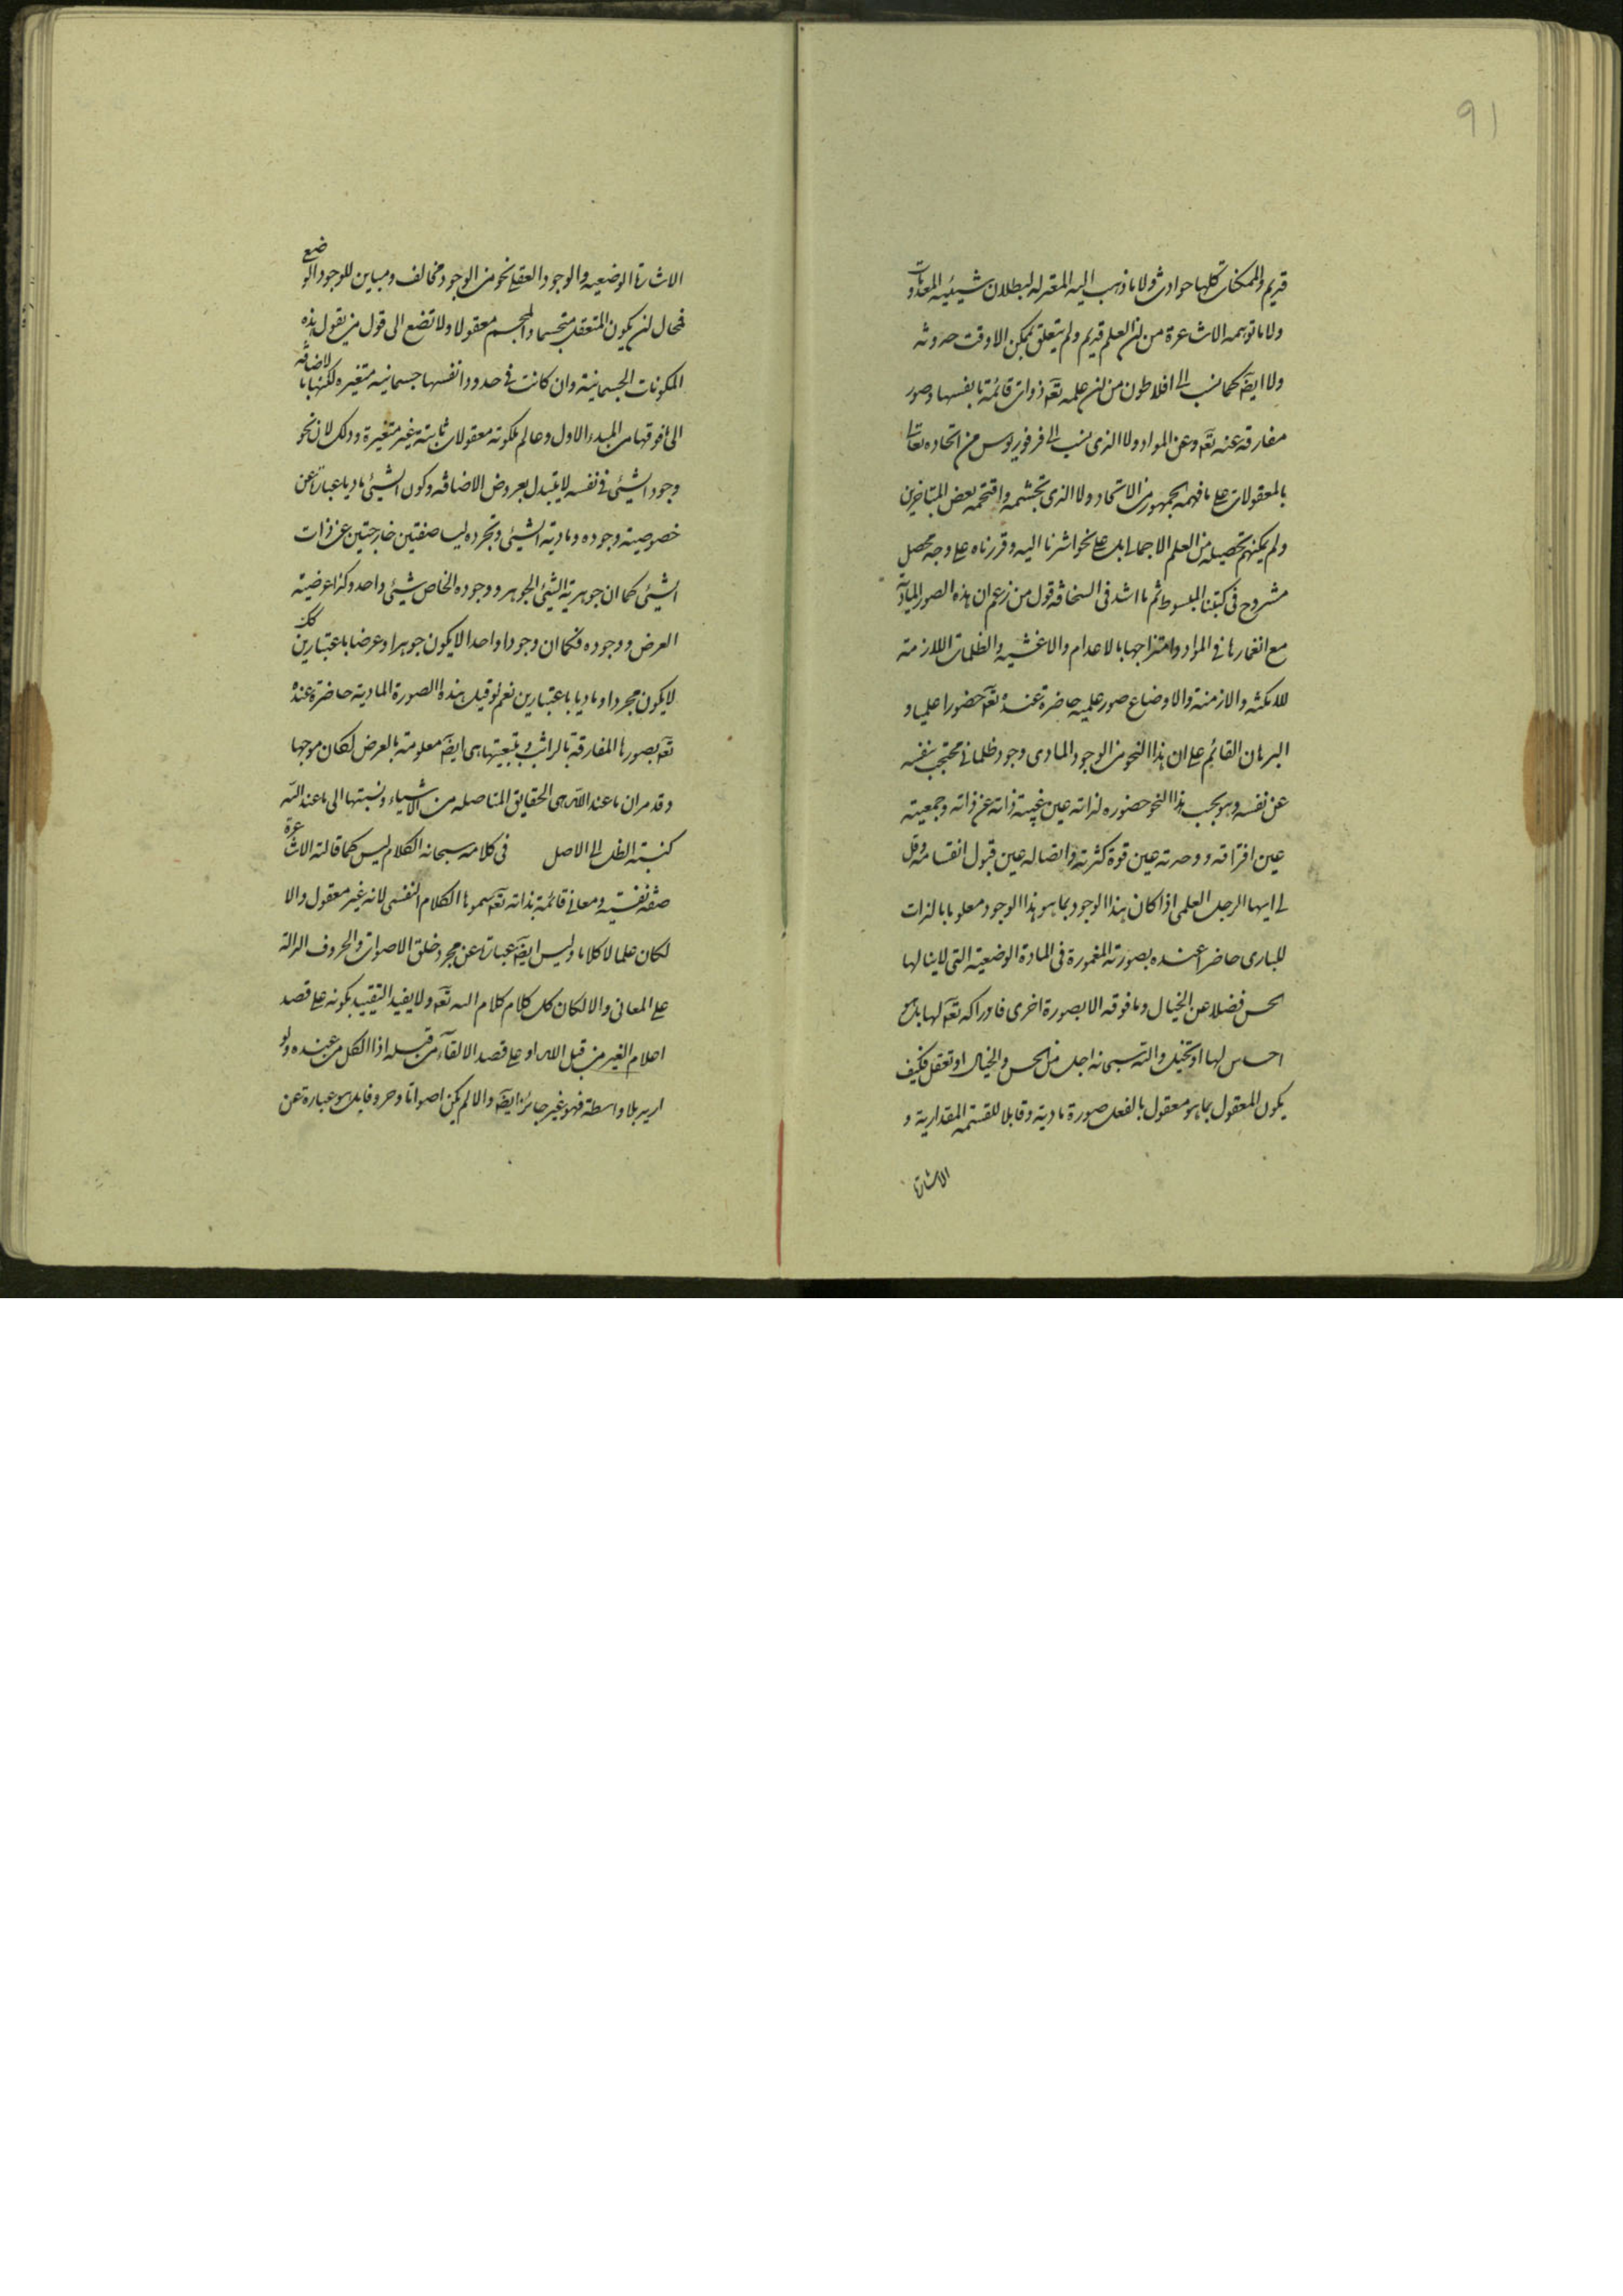 91
قديم والممكنات كلها حوادث ولا ما ذهب اليه المعتزله لبطلان شيئيه المعدومات
ولا ما توهمه الاشاعرة من ان العلم قديم ولم يتعلق بممكن الا وقت حدوثه
ولا ايضا كما نسب الى افلاطون من ان علمه تعه ذوات قائمة بانفسها وصور
مفارقة عنه تعه وعن المواد ولا الذى نسب الى فرفوريوس من اتحاده تعالى
بالمعقولات على ما فهمه الجمهور من الاتحاد ولا الذى تجشمه واقتحمه بعض المتاخرين
ولم يمكنهم تحصيله من العلم الاجمالى بل على نحو اشرنا اليه وقررناه على وجه محصل
مشروح فى كتبنا المبسوط ثم ما اشد فى السخافة قول من زعم ان هذه الصور المادية
مع انغمارها فى المواد وامتزاجها بالاعدام والاغشيه والظلمات اللازمة
للامكنه والازمنة والاوضاع صور علميه حاضرة عنده تعه حضورا علميا و
البرهان القائم على ان هذا النحو من الوجود المادى وجود ظلمانى محتجب بنفسه
عن نفسه وهو بحسب هذا النحو حضوره لذاته عين غيبة ذاته عن ذاته وجمعيته
عين افتراقه ووحدته عين قوة كثرته واتصاله عين قبول انقسامه وقل
لى ايها الرجل العلمى اذا كان هذا الوجود بما هو هذا الوجود معلوما بالذات
للبارى حاضرا عنده بصورته المغمورة فى المادة الوضعية التى لا ينالها
الحس فضلا عن الخيال وما فوقه الا بصورة اخرى فادراكه تعه لها بل هو
احساس لها او تخيل والله سبحانه اجل من الحس والخيال او تعقل فكيف
يكون المعقول بما هو معقول بالفعل صورة مادية وقابلا للقسمة المقدارية و
الاشارة
الاشارة الوضعيه والوجود العقلى نحو من الوجود مخالف ومباين للوجود الوضعى
فمحال ان يكون المتعقل متجسما والمجسم معقولا ولا تصغ الى قول من يقول هذه
المكونات الجسمانية وان كانت فى حدود انفسها جسمانيه متغيره لكنها بالاضافة
الى ما فوقها من المبدء الاول وعالم ملكوته معقولات ثابتة غير متغيرة وذلك لان نحو
وجود الشيئ فى نفسه لا يتبدل بعروض الاضافه وكون الشيئ ماديا عبارة عن
خصوصية وجوده ومادية الشيئ وتجرده ليسا صفتين خارجتين عن ذات
الشيئ كما ان جوهرية الشيئ الجوهر ووجوده الخاص شيئ واحد وكذا عرضية
العرض ووجوده فكما ان وجودا واحدا لا يكون جوهرا وعرضا باعتبارين كك
لا يكون مجردا وماديا باعتبارين نعم لو قيل هذه الصورة المادية حاضرة عنده
تعه بصورها المفارقة بالذات وبتبعيتها هى ايضا معلومة بالعرض لكان موجها
وقد مر ان ما عند الله هى الحقايق المتاصله من الاشياء ونسبتها الى ما عند الله
كنسبة الظل الى الاصل فى كلامه سبحانه الكلام ليس كما قالته الاشاعرة
صفة نفسية ومعانى قائمة بذاته تعه سموها الكلام النفسى لانه غير معقول والا
لكان علما لا كلاما وليس ايضا عبارة عن مجرد خلق الاصوات والحروف الدالة
على المعانى والا لكان كل كلام كلام الله تعه ولا يفيد التقييد بكونه على قصد
اعلام الغير من قبل الله او على قصد الالقآء من قبله اذا الكل من عنده ولو
اريد بلا واسطة فهو غير جائز ايضا والا لم يكن اصواتا وحروفا بل هو عبارة عن